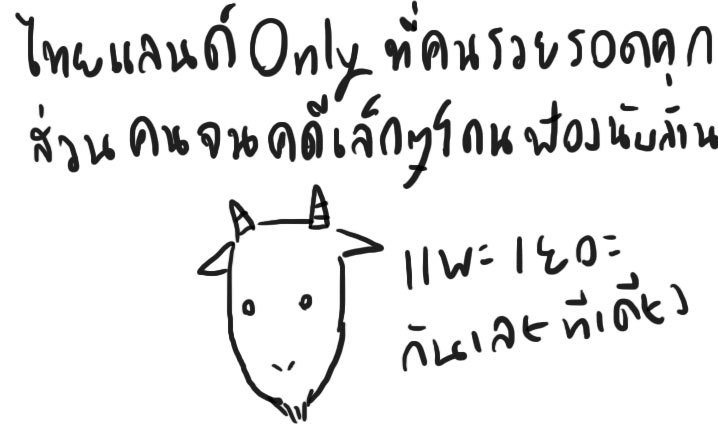 ไทยแลนด์ Only ที่คนรวยรอดคุก
ส่วน คนจนคดีเล็กๆโดนฟ้องนับล้าน
แพะเยอะ
กันเลยทีเดียว